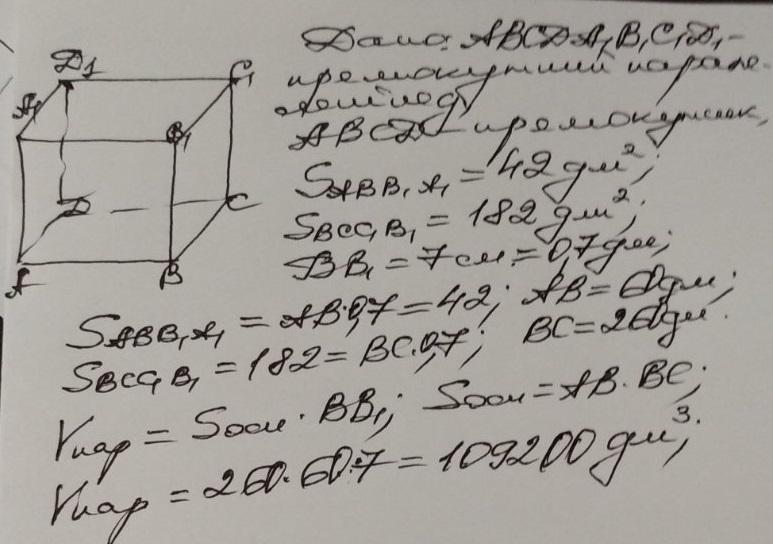 Дано: ABCDA₁B₁C₁D₁ –
прямокутний парале-
лепіпед
ABCD – прямокутник,
S_ABB₁A₁ = 42 дм²;
S_BCC₁B₁ = 182 дм²;
BB₁ = 7 см = 0,7 дм;
S_ABB₁A₁ = AB·0,7 = 42; AB = 60 дм;
S_BCC₁B₁ = 182 = BC·0,7; BC = 260 дм.
Vпар = Sосн · BB₁; Sосн = AB · BC;
Vпар = 260·60·7 = 109200 дм³;
D₁
C₁
A₁
B₁
D
C
A
B